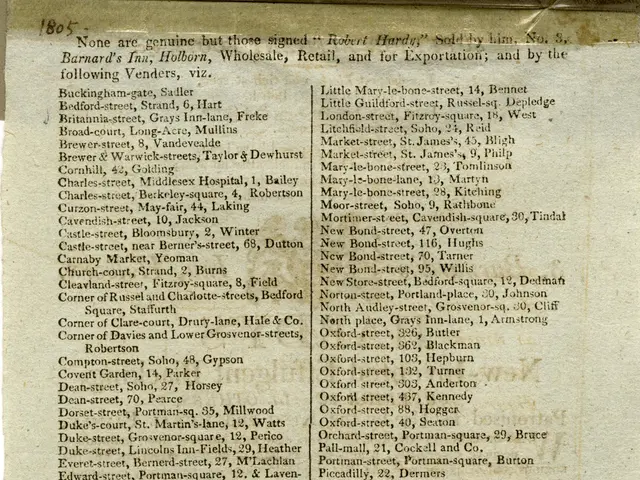 1805.
None are genuine but those signed "Robert Hardy," Sold by him, No. 3,
Barnard's Inn, Holborn, Wholesale, Retail, and for Exportation; and by the
following Venders, viz.
Buckingham-gate, Sadler
Bedford-street, Strand, 6, Hart
Britannia-street, Grays Inn-lane, Freke
Broad-court, Long-Acre, Mullins
Brewer-street, 8, Vandevealde
Brewer & Warwick-streets, Taylor & Dewhurst
Cornhill, 42, Golding
Charles-street, Middlesex Hospital, 1, Bailey
Charles-street, Berkeley-square, 4, Robertson
Curzon-street, May-fair, 44, Laking
Cavendish-street, 10, Jackson
Castle-street, Bloomsbury, 2, Winter
Castle-street, near Berner's-street, 68, Dutton
Carnaby Market, Yeoman
Church-court, Strand, 2, Burns
Cleavland-street, Fitzroy-square, 8, Field
Corner of Russel and Charlotte-streets, Bedford
Square, Stalfurth
Corner of Clare-court, Drury-lane, Hale & Co.
Corner of Davies and Lower Grosvenor-streets,
Robertson
Compton-street, Soho, 48, Gypson
Covent Garden, 14, Parker
Dean-street, Soho, 27, Horsey
Dean-street, 70, Pearce
Dorset-street, Portman-sq. 35, Millwood
Duke's-court, St. Martin's-lane, 12, Watts
Duke-street, Grosvenor-square, 12, Perico
Duke-street, Lincolns Inn-Fields, 29, Heather
Everet-street, Bernerd-street, 27, M'Lachlan
Edward-street, Portman-square, 12, & Laven-
Little Mary-le-bone-street, 14, Bennet
Little Guildford-street, Russel-sq. Depledge
London-street, Fitzroy-square, 18, West
Litchfield-street, Soho, 24, Reid
Market-street, St. James's, 45, Bligh
Market-street, St. James's, 9, Philp
Mary-le-bone-street, 23, Tomlinson
Mary-le-bone-lane, 13, Martyn
Mary-le-bone-street, 28, Kitching
Moor-street, Soho, 9, Rathbone
Mortimer-street, Cavendish-square, 30, Tindal
New Bond-street, 47, Overton
New Bond-street, 116, Hughs
New Bond-street, 70, Tarner
New Bond-street, 95, Willis
New Store-street, Bedford-square, 12, Dedman
Norton-street, Portland-place, 30, Johnson
North Audley-street, Grosvenor-sq. 30, Cliff
North place, Grays Inn-lane, 1, Armstrong
Oxford-street, 326, Butler
Oxford-street, 362, Blackman
Oxford-street, 103, Hepburn
Oxford-street, 132, Turner
Oxford-street, 303, Anderton
Oxford-street, 437, Kennedy
Oxford-street, 88, Hogger
Oxford-street, 40, Seaton
Orchard-street, Portman-square, 29, Bruce
Pall-mall, 21, Cockell and Co.
Portman-street, Portman-square, Burton
Piccadilly, 22, Dermers